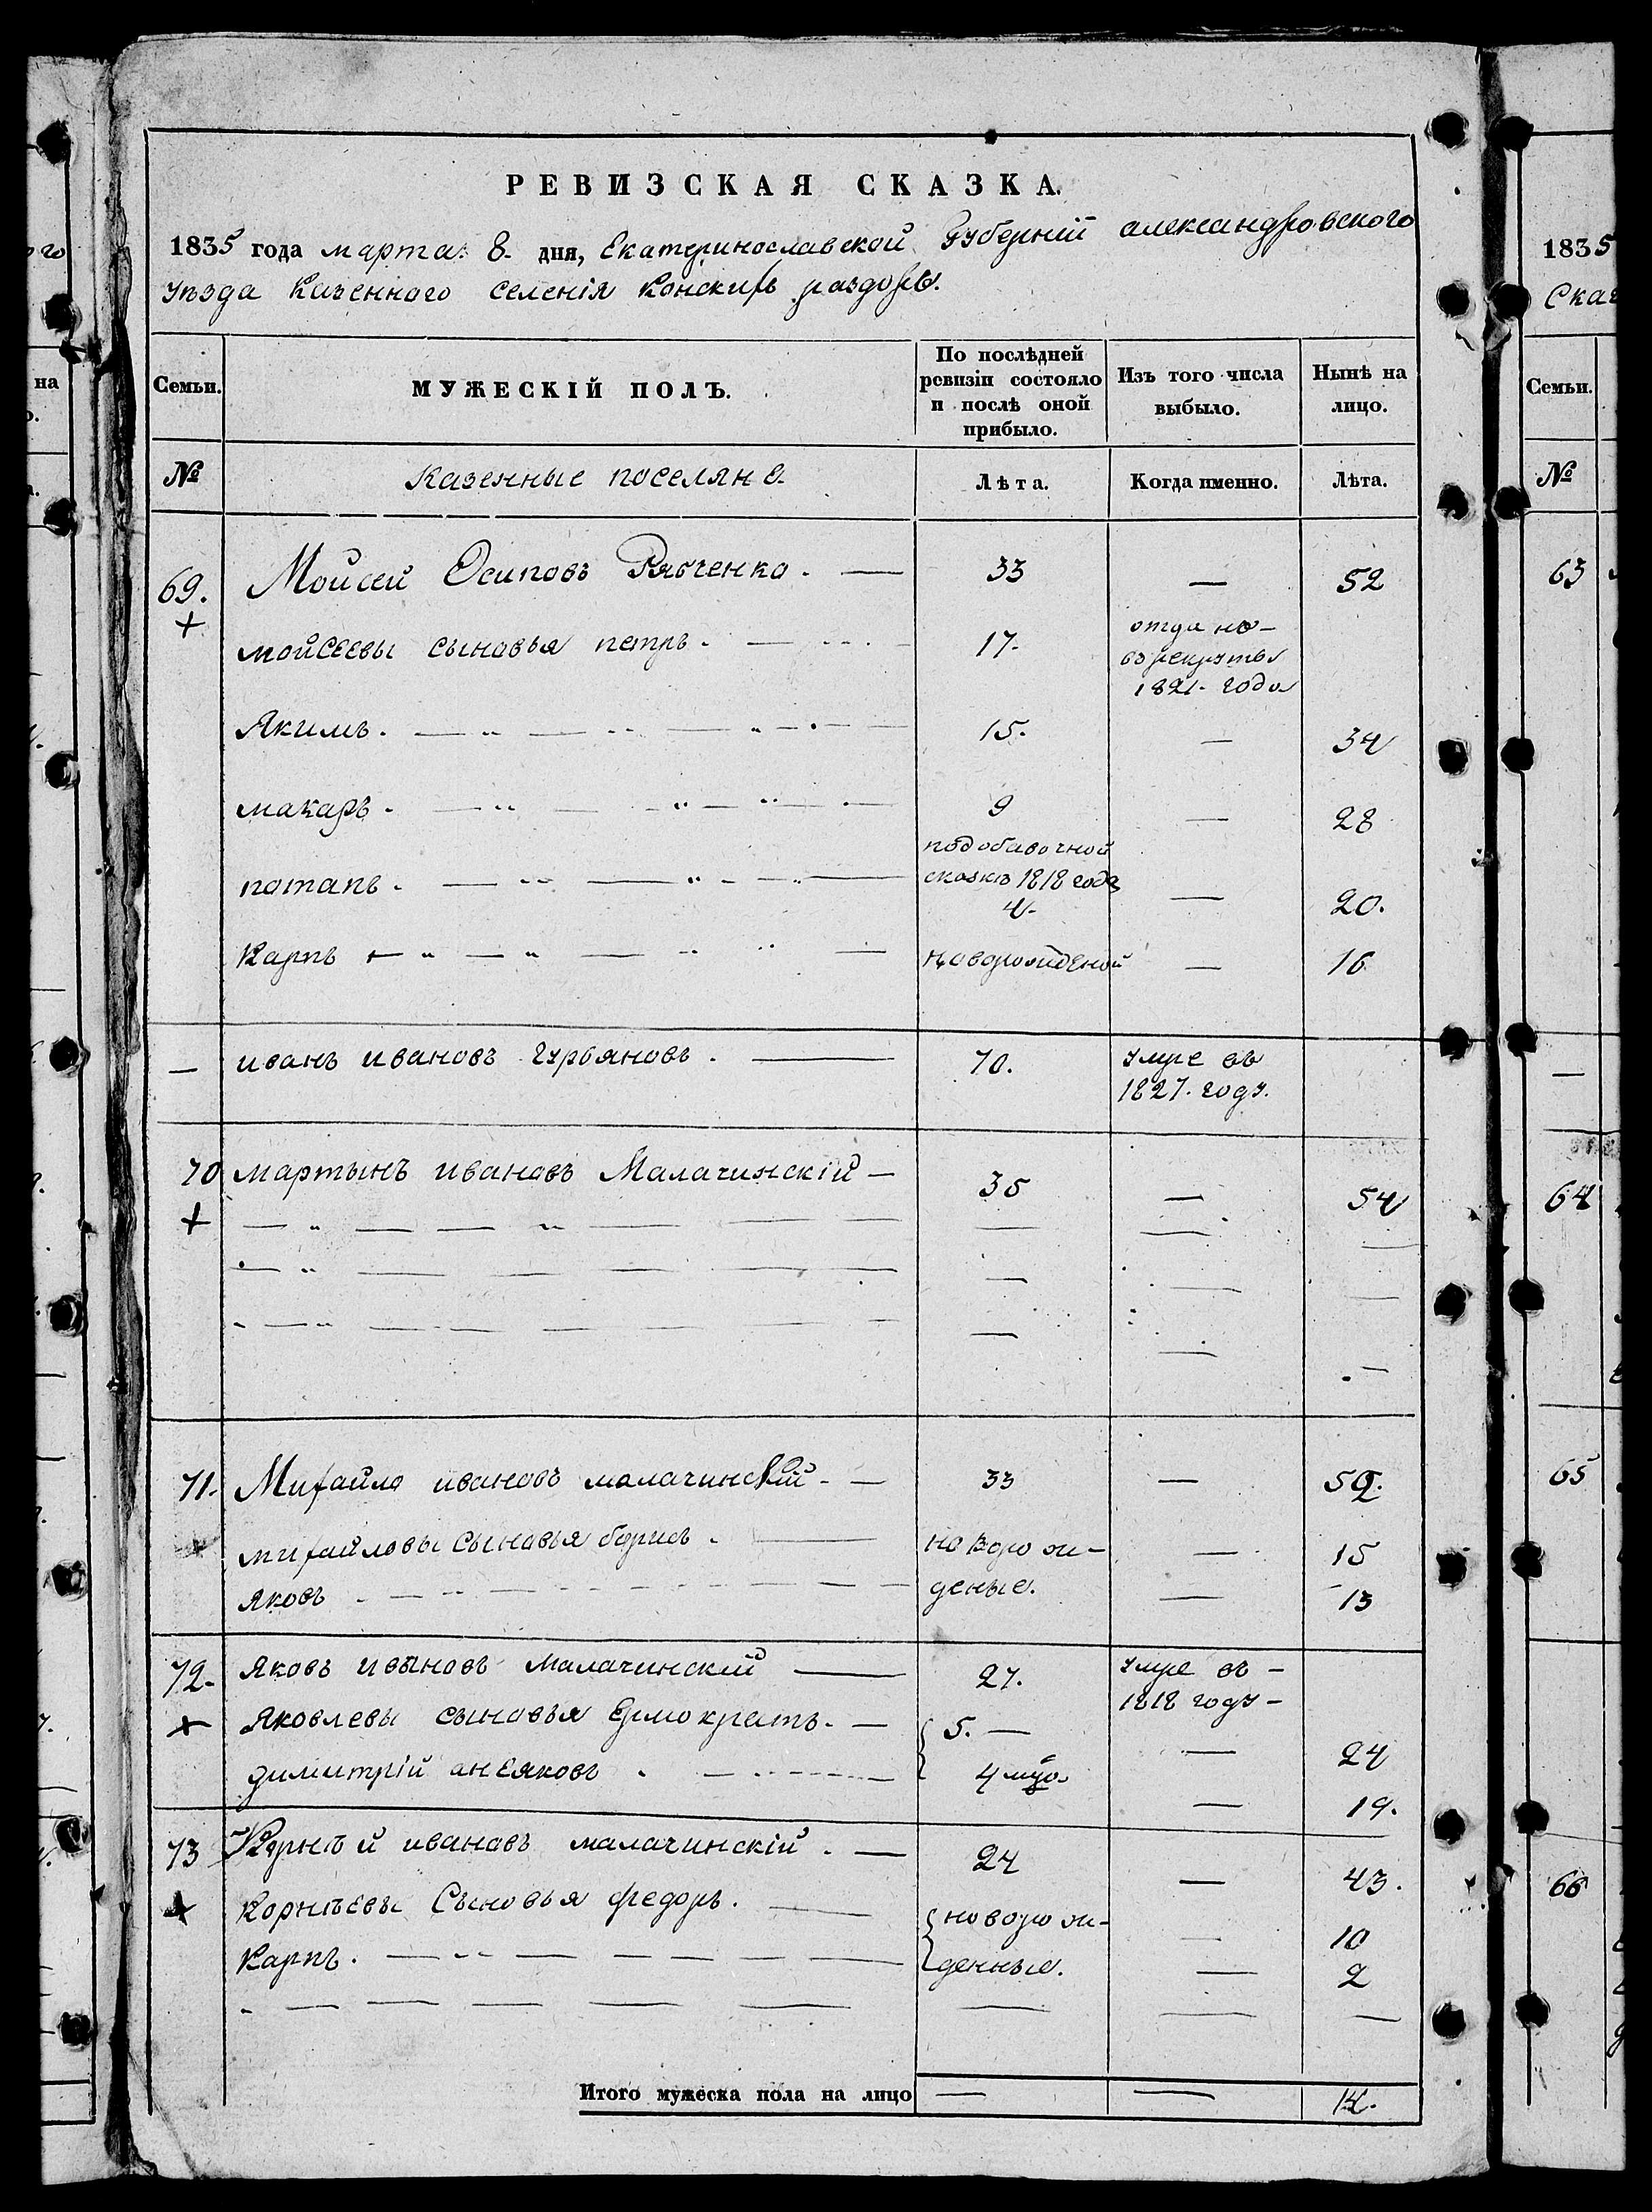 РЕВИЗСКАЯ СКАЗКА.
1835 года марта 8 дня, Екатеринославской Губерніи александровскаго
уѣзда Казенного селенія Конскихъ раздоръ.
Семьи. МУЖЕСКІЙ ПОЛЪ. По послѣдней ревизіи состояло и послѣ оной прибыло. Изъ того числа выбыло. Нынѣ на лицо.
№ Казенные поселяне Лѣта. Когда именно. Лѣта.
69. Мойсей Осиповъ Рябченко. — 33 — 52
мойсеевы сыновья петръ. 17. отда но- въ рекруты 1821. года
Якимъ. 15. — 34
макаръ. 9 — 28
потапъ. подобавочной сказкѣ 1818 года 4. — 20.
Карпъ новорожденой — 16
— иванъ ивановъ гурьяновъ. — 70. умре въ 1827. году.
70 мартынъ ивановъ Малачинскій — 35 — 54
71. Михайло ивановъ малачинскій. — 33 — 52.
михайловы сыновья борисъ. новорож- — 15
яковъ деные. — 13
72. яковъ ивановъ малачинскій — 27. умре въ - 1818 году -
яковлевы сыновья Ермократъ. — 5. — — 24
димитрій анеяковъ. — 19.
73 Корнѣй ивановъ малачинскій. — 24 — 43.
Корнѣевы Сыновья федоръ. новорож- — 10
Карпъ. денные. — 2
Итого мужеска пола на лицо — — 14.
1835
Ска
на
Семьи.
№
63
—
64
65
66